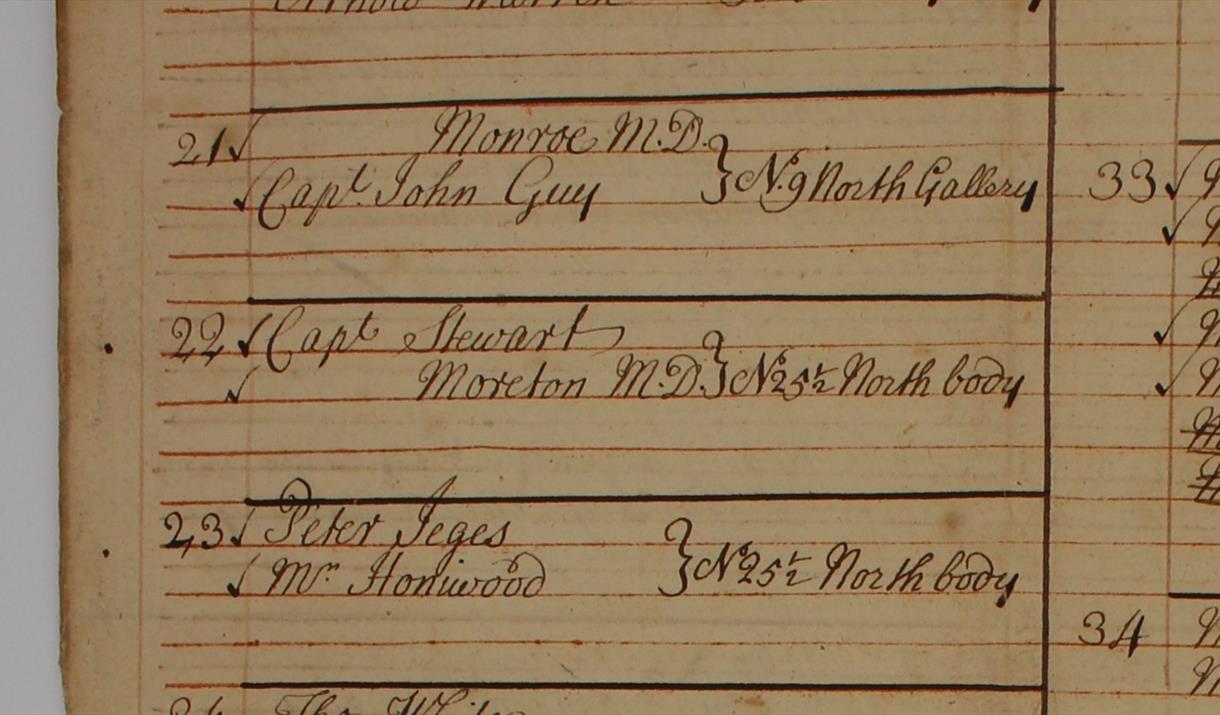 Arnold Warren
21 √ Monroe M.D.
√ Capt. John Guy } No. 9 North Gallery
22 √ Capt Stewart
√ Moreton M.D. } No 25 1/2 North body
23 √ Peter Jeges
√ Mr. Honiwood } No 25 1/2 North body
24 Tho White
33 √
√
√
√
34